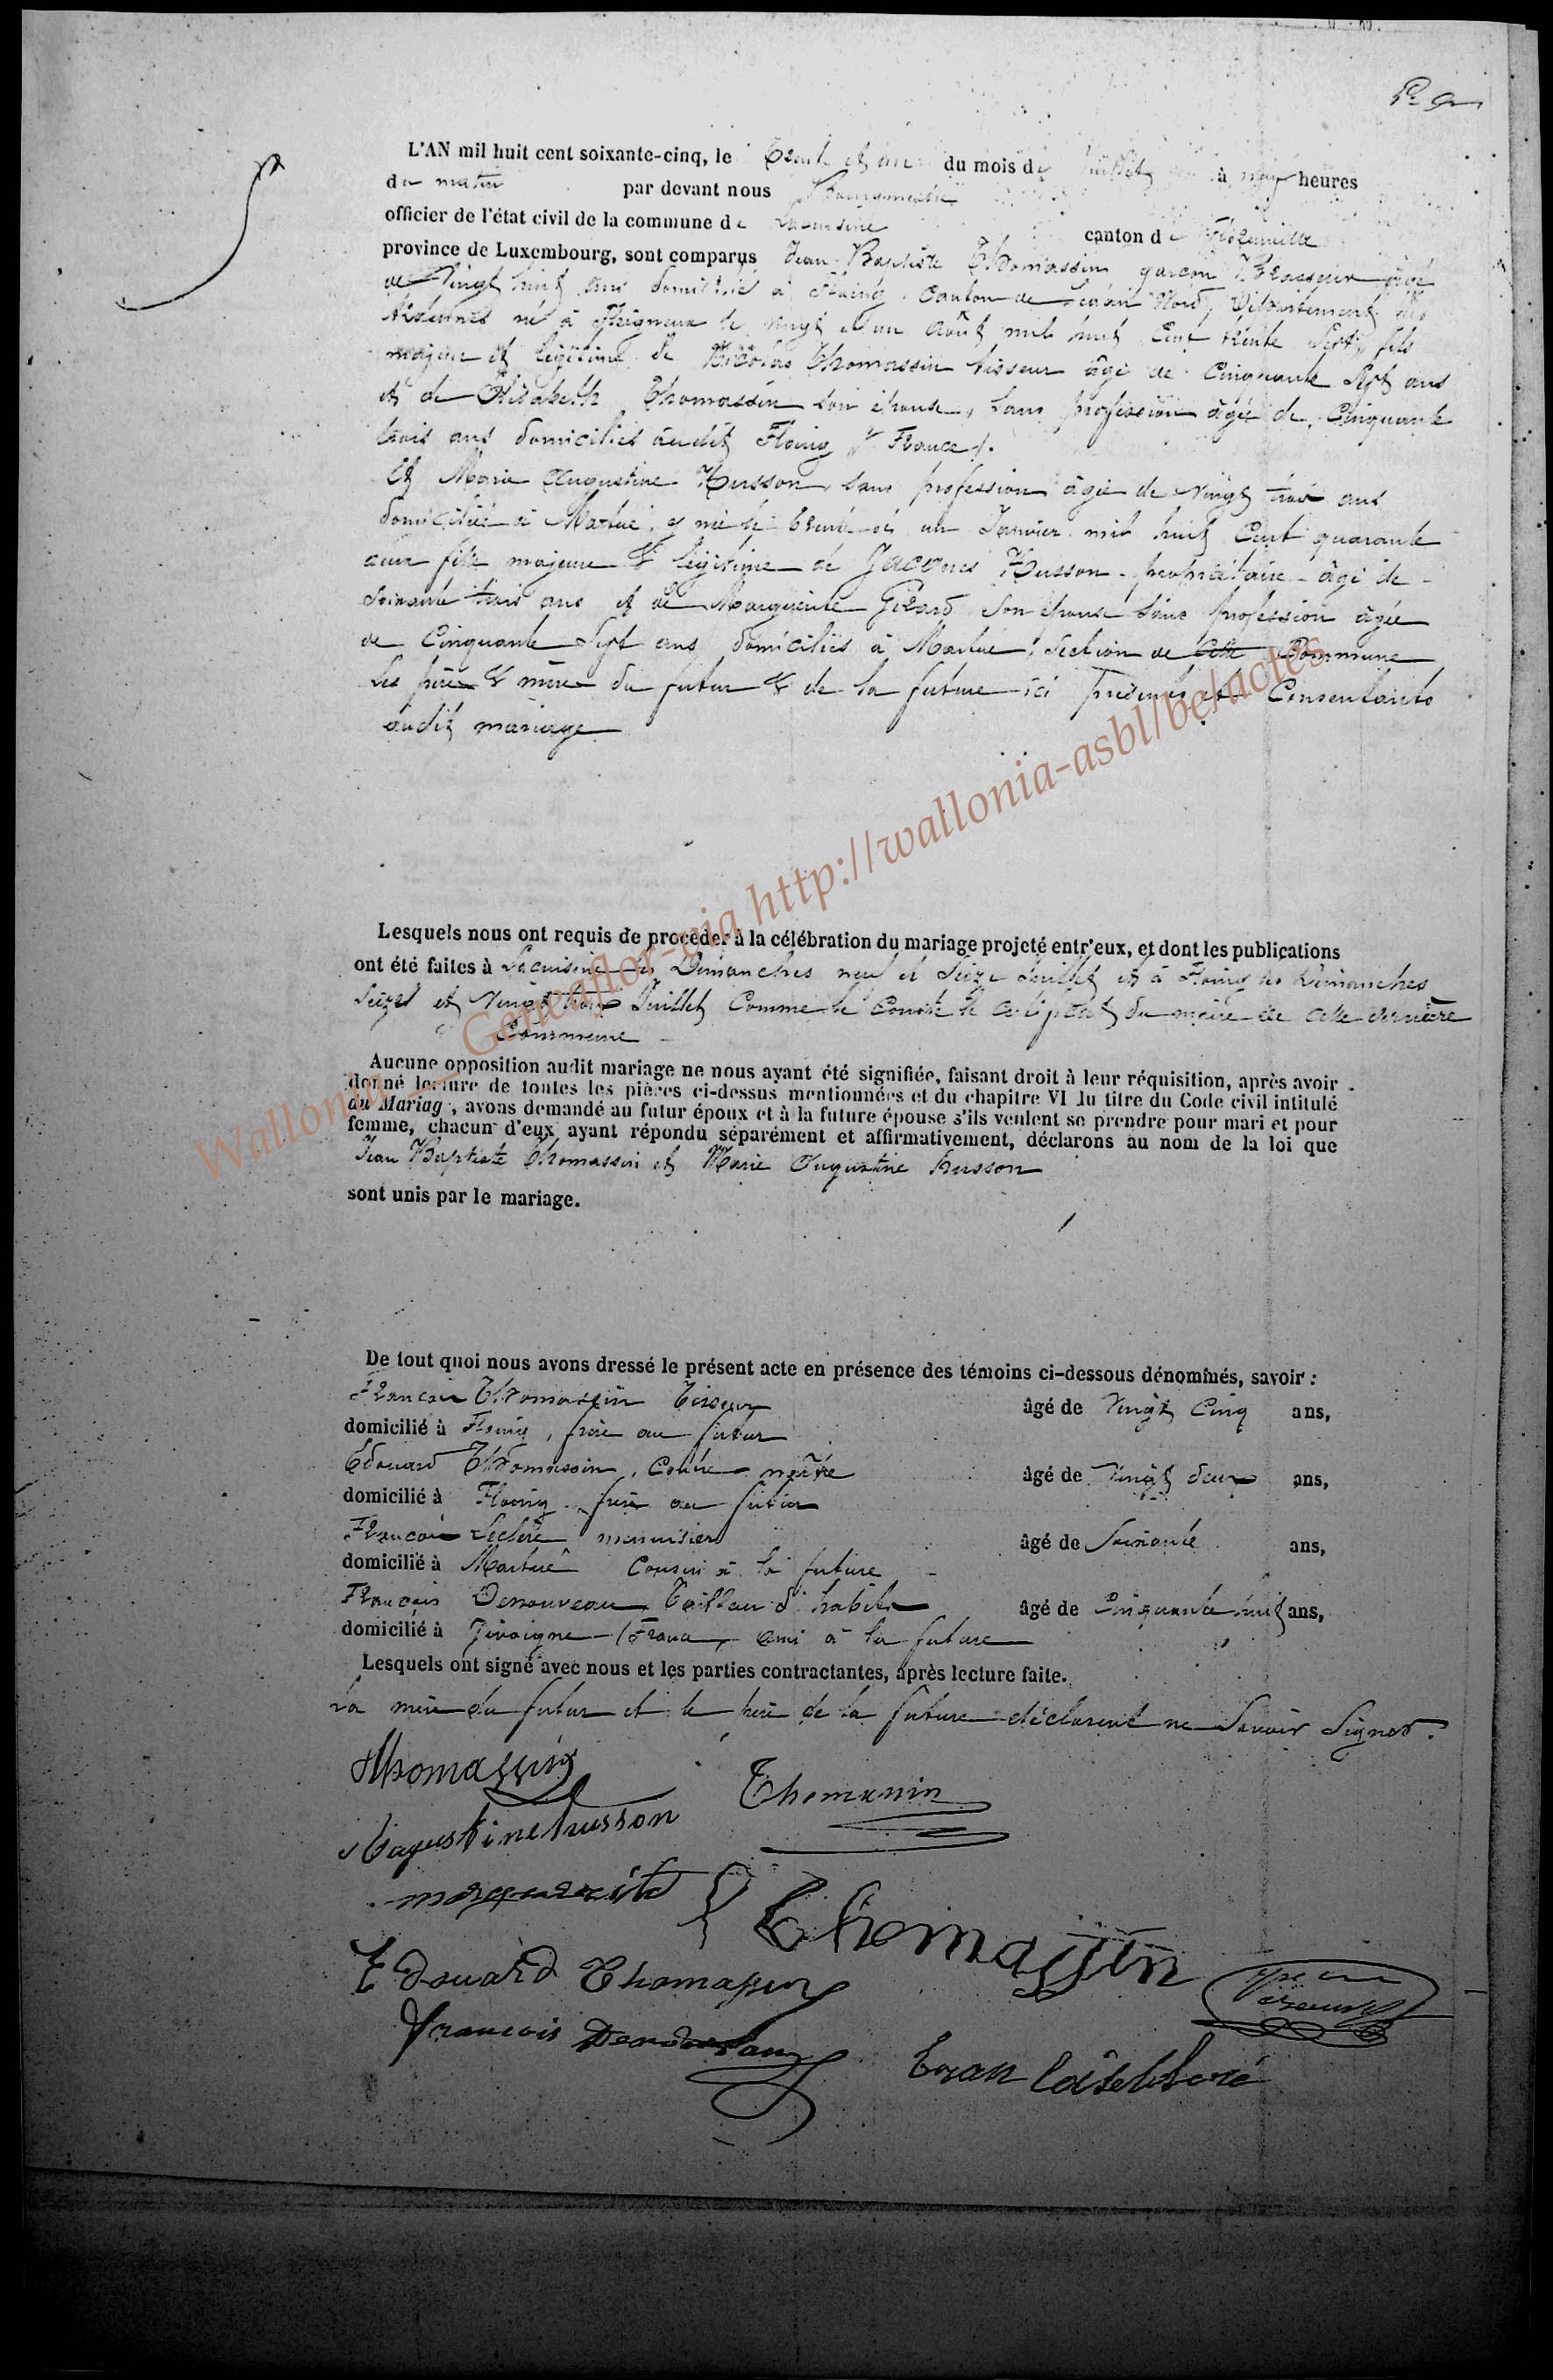 L'AN mil huit cent soixante-cinq, le trente et un du mois de juillet à neuf heures
du matin par devant nous Bourgmestre
officier de l'état civil de la commune de Lacuisine canton de Florenville
province de Luxembourg, sont comparus Jean Baptiste Thomassin garçon Brasseur âgé
de Vingt huit ans domicilié à Floing, Canton de Sedan Nord, Département des
Ardennes né à Fleigneux le vingt et un août mil huit Cent trente Sept, fils
majeur et légitime de Nicolas Thomassin tisseur âgé de Cinquante Sept ans
et de Elisabeth Thomassin son épouse, sans profession âgée de Cinquante
trois ans domiciliés audit Floing (France).
Et Marie Augustine Husson, sans profession âgée de vingt trois ans
domiciliée à Martué, y née le trente et un Janvier mil huit Cent quarante
deux fille majeure & légitime de Jacques Husson propriétaire âgé de
Soixante trois ans et de Marguerite Girard son épouse sans profession âgée
de Cinquante Sept ans domiciliés à Martué, Section de Cette Commune
Les père & mère du futur & de la future ici présents et Consentants
audit mariage
Lesquels nous ont requis de procéder à la célébration du mariage projeté entr'eux, et dont les publications
ont été faites à Lacuisine les Dimanches neuf et Seize Juillet et à Floing les Dimanches
Seize et Vingt trois Juillet Comme le Conste le Certificat du maire de Cette dernière
Commune
Aucune opposition audit mariage ne nous ayant été signifiée, faisant droit à leur réquisition, après avoir
donné lecture de toutes les pièces ci-dessus mentionnées et du chapitre VI du titre du Code civil intitulé
du Mariag , avons demandé au futur époux et à la future épouse s'ils veulent se prendre pour mari et pour
femme, chacun d'eux ayant répondu séparément et affirmativement, déclarons au nom de la loi que
Jean Baptiste Thomassin et Marie Augustine husson
sont unis par le mariage.
De tout quoi nous avons dressé le présent acte en présence des témoins ci-dessous dénommés, savoir :
François Thomassin Tisseur âgé de Vingt Cinq ans,
domicilié à Floing, frère au futur
Edouard Thomassin, Contre maître âgé de Vingt deux ans,
domicilié à Floing frère au futur
François Leclère menuisier âgé de Soixante ans,
domicilié à Martué Cousin à la future
François Tailleur d'habits âgé de Cinquante huit ans,
domicilié à (France) ami à la future
Lesquels ont signé avec nous et les parties contractantes, après lecture faite.
La mère du futur et le père de la future déclarent ne Savoir Signer.
Thomassin
Thomassin
Augustine husson
marguerite
Thomassin
Edouard Thomassin
françois
Wallonia - Geneaflor-via http://wallonia-asbl/be/actes